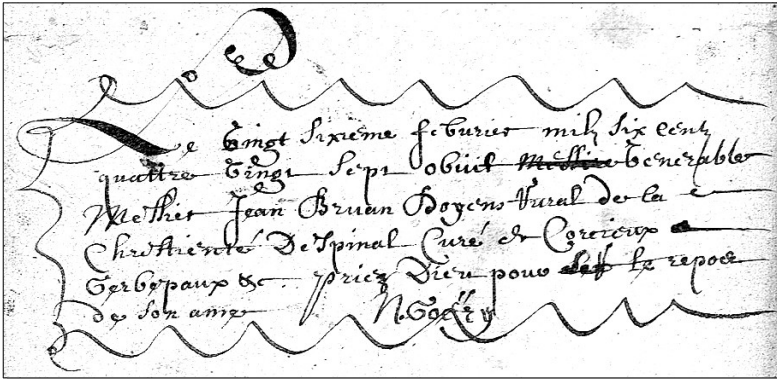 Le Vingt Sixieme febvrier mil six centz
quattre Vingt Sept obiit Messire Venerable
Messire Jean Bruan Doyens Rural de la
Chrestienté Despinal Curé de Corcieux
Gerbepaux &c. priez Dieu pour le repos
de son ame